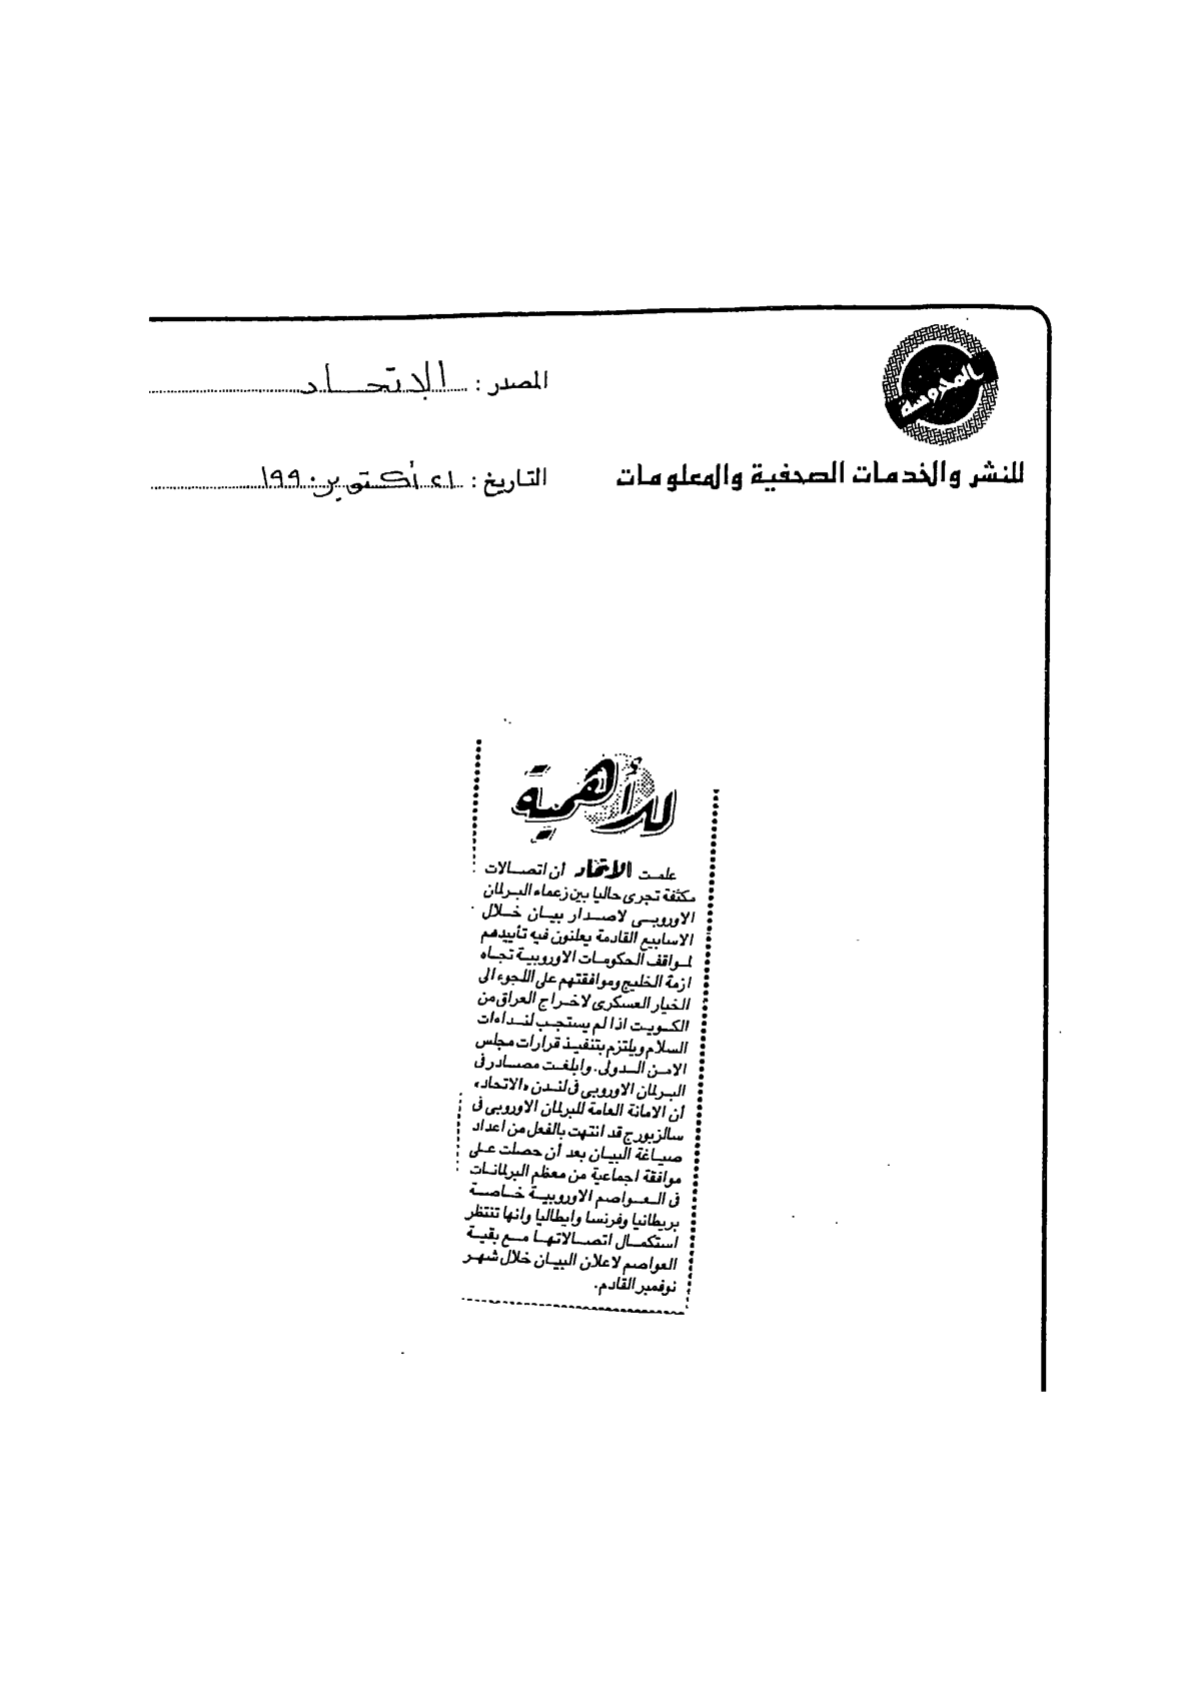 المحروسة
للنشر والخدمات الصحفية والمعلومات
المصدر : الإتحاد
التاريخ : ٢١ أكتوبر ١٩٩٠
للأهمية
علمت الاتحاد ان اتصالات
مكثفة تجرى حاليا بين زعماء البرلمان
الاوروبى لاصدار بيان خلال
الاسابيع القادمة يعلنون فيه تأييدهم
لمواقف الحكومات الاوروبية تجاه
ازمة الخليج وموافقتهم على اللجوء الى
الخيار العسكرى لاخراج العراق من
الكويت اذا لم يستجب لنداءات
السلام ويلتزم بتنفيذ قرارات مجلس
الامن الدولى. وابلغت مصادر فى
البرلمان الاوروبى فى لندن «الاتحاد»
أن الامانة العامة للبرلمان الاوروبى فى
سالزبورج قد انتهت بالفعل من اعداد
صياغة البيان بعد أن حصلت على
موافقة اجماعية من معظم البرلمانات
فى العواصم الاوروبية خاصة
بريطانيا وفرنسا وايطاليا وانها تنتظر
استكمال اتصالاتها مع بقية
العواصم لاعلان البيان خلال شهر
نوفمبر القادم.